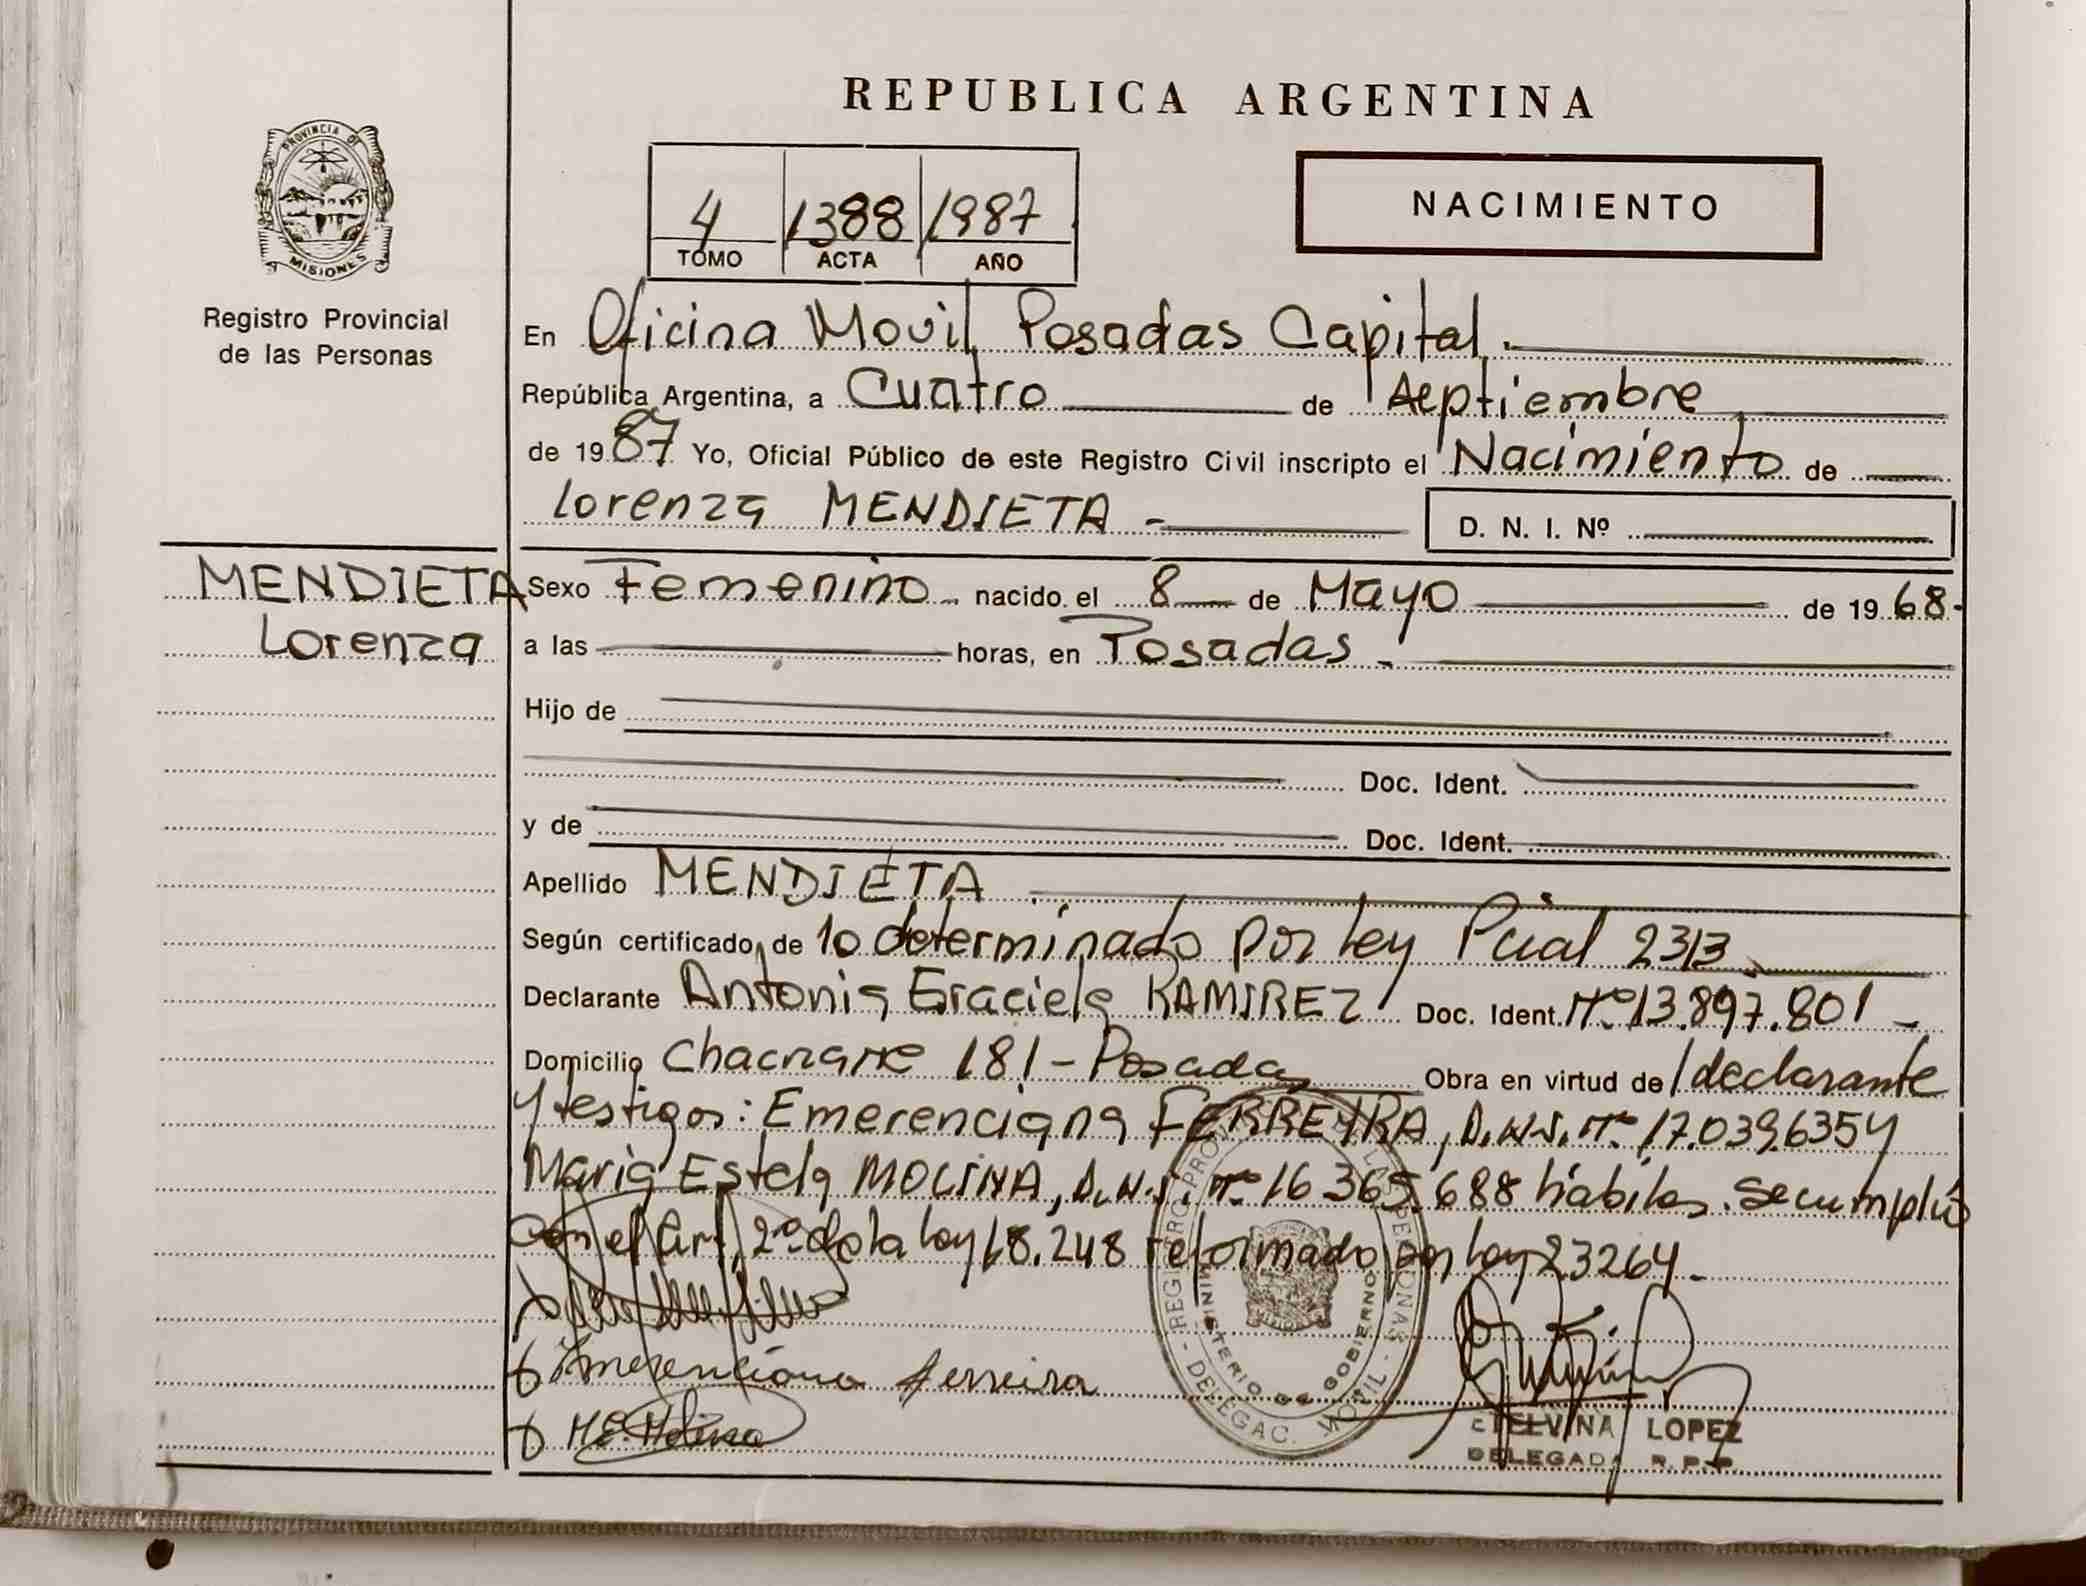 REPUBLICA ARGENTINA
PROVINCIA DE
MISIONES
Registro Provincial
de las Personas
4 1388 1987
TOMO ACTA AÑO
NACIMIENTO
En Oficina Movil, Posadas Capital.
República Argentina, a Cuatro de septiembre
de 1987 Yo, Oficial Público de este Registro Civil inscripto el Nacimiento de
Lorenza MENDIETA - D. N. I. Nº
MENDIETA
Lorenza
Sexo Femenino nacido el 8 de Mayo de 1968.
a las horas, en Posadas -
Hijo de
Doc. Ident.
y de Doc. Ident.
Apellido MENDIETA
Según certificado de lo determinado por ley Pcial 2313
Declarante Antonia Graciela RAMIREZ Doc. Ident. Nº 13.897.801 -
Domicilio Chacra 181 - Posadas Obra en virtud de declarante
y testigos: Emerenciana FERREYRA, D.N.I. Nº 17.039.635 y
Maria Estela MOLINA, D.N.I. Nº 16 365 688 hábiles. Se cumplió
con el Art. 2º de la ley 18.248 reformado por ley 23264.
Emerenciana Ferreira
M.E. Molina
REGISTRO PROV. DE LAS PERSONAS
MINISTERIO DE GOBIERNO
DELEGAC. MOVIL
ETELVINA LOPEZ
DELEGADA R.P.P.